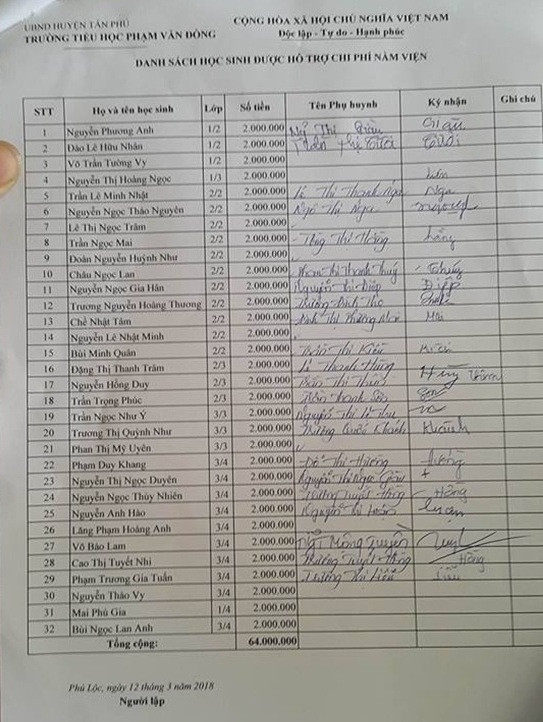 UBND HUYỆN TÂN PHÚ
TRƯỜNG TIỂU HỌC PHẠM VĂN ĐỒNG
CỘNG HÒA XÃ HỘI CHỦ NGHĨA VIỆT NAM
Độc lập - Tự do - Hạnh phúc
DANH SÁCH HỌC SINH ĐƯỢC HỖ TRỢ CHI PHÍ NẰM VIỆN
STT Họ và tên học sinh Lớp Số tiền Tên Phụ huynh Ký nhận Ghi chú
1 Nguyễn Phương Anh 1/2 2.000.000 Thị
2 Đào Lê Hữu Nhân 1/2 2.000.000 Trần Thị Tươi Tươi
3 Võ Trần Tường Vy 1/2 2.000.000
4 Nguyễn Thị Hoàng Ngọc 1/3 2.000.000
5 Trần Lê Minh Nhật 2/2 2.000.000 Lê Thị Thanh Nga Nga
6 Nguyễn Ngọc Thảo Nguyên 2/2 2.000.000 Ngô Thị Nga
7 Lê Thị Ngọc Trâm 2/2 2.000.000
8 Trần Ngọc Mai 2/2 2.000.000 Tống Thị Hồng
9 Đoàn Nguyễn Huỳnh Như 2/2 2.000.000
10 Châu Ngọc Lan 2/2 2.000.000 Phan Thị Thanh Thúy Thúy
11 Nguyễn Ngọc Gia Hân 2/2 2.000.000 Nguyễn Thị Điệp Điệp
12 Trương Nguyễn Hoàng Thương 2/2 2.000.000 Trương Đình
13 Chế Nhật Tâm 2/2 2.000.000 Đinh Thị Phương
14 Nguyễn Lê Nhật Minh 2/2 2.000.000
15 Bùi Minh Quân 2/2 2.000.000 Trần Thị Kiều Kiều
16 Đặng Thị Thanh Trâm 2/3 2.000.000 Lê Thanh Hùng
17 Nguyễn Hồng Duy 2/3 2.000.000 Trần Thị
18 Trần Trọng Phúc 2/3 2.000.000 Trần Thanh
19 Trần Ngọc Như Ý 3/3 2.000.000 Nguyễn Thị Lê Thu
20 Trương Thị Quỳnh Như 3/3 2.000.000 Trương Quốc Khánh Khánh
21 Phan Thị Mỹ Uyên 3/3 2.000.000
22 Phạm Duy Khang 3/4 2.000.000 Đỗ Thị Hương Hương
23 Nguyễn Thị Ngọc Duyên 3/4 2.000.000 Nguyễn Thị Ngọc
24 Nguyễn Ngọc Thùy Nhiên 3/4 2.000.000 Trương Tuyết Hồng Hồng
25 Nguyễn Anh Hào 3/4 2.000.000 Nguyễn Thị
26 Lăng Phạm Hoàng Anh 3/4 2.000.000
27 Võ Bảo Lam 3/4 2.000.000 Mộng Tuyền
28 Cao Thị Tuyết Nhi 3/4 2.000.000 Trương Tuyết Hồng Hồng
29 Phạm Trương Gia Tuấn 3/4 2.000.000 Trương Thị Liễu Liễu
30 Nguyễn Thảo Vy 3/4 2.000.000
31 Mai Phú Gia 1/4 2.000.000
32 Bùi Ngọc Lan Anh 3/4 2.000.000
Tổng cộng: 64.000.000
Phú Lộc, ngày 12 tháng 3 năm 2018
Người lập